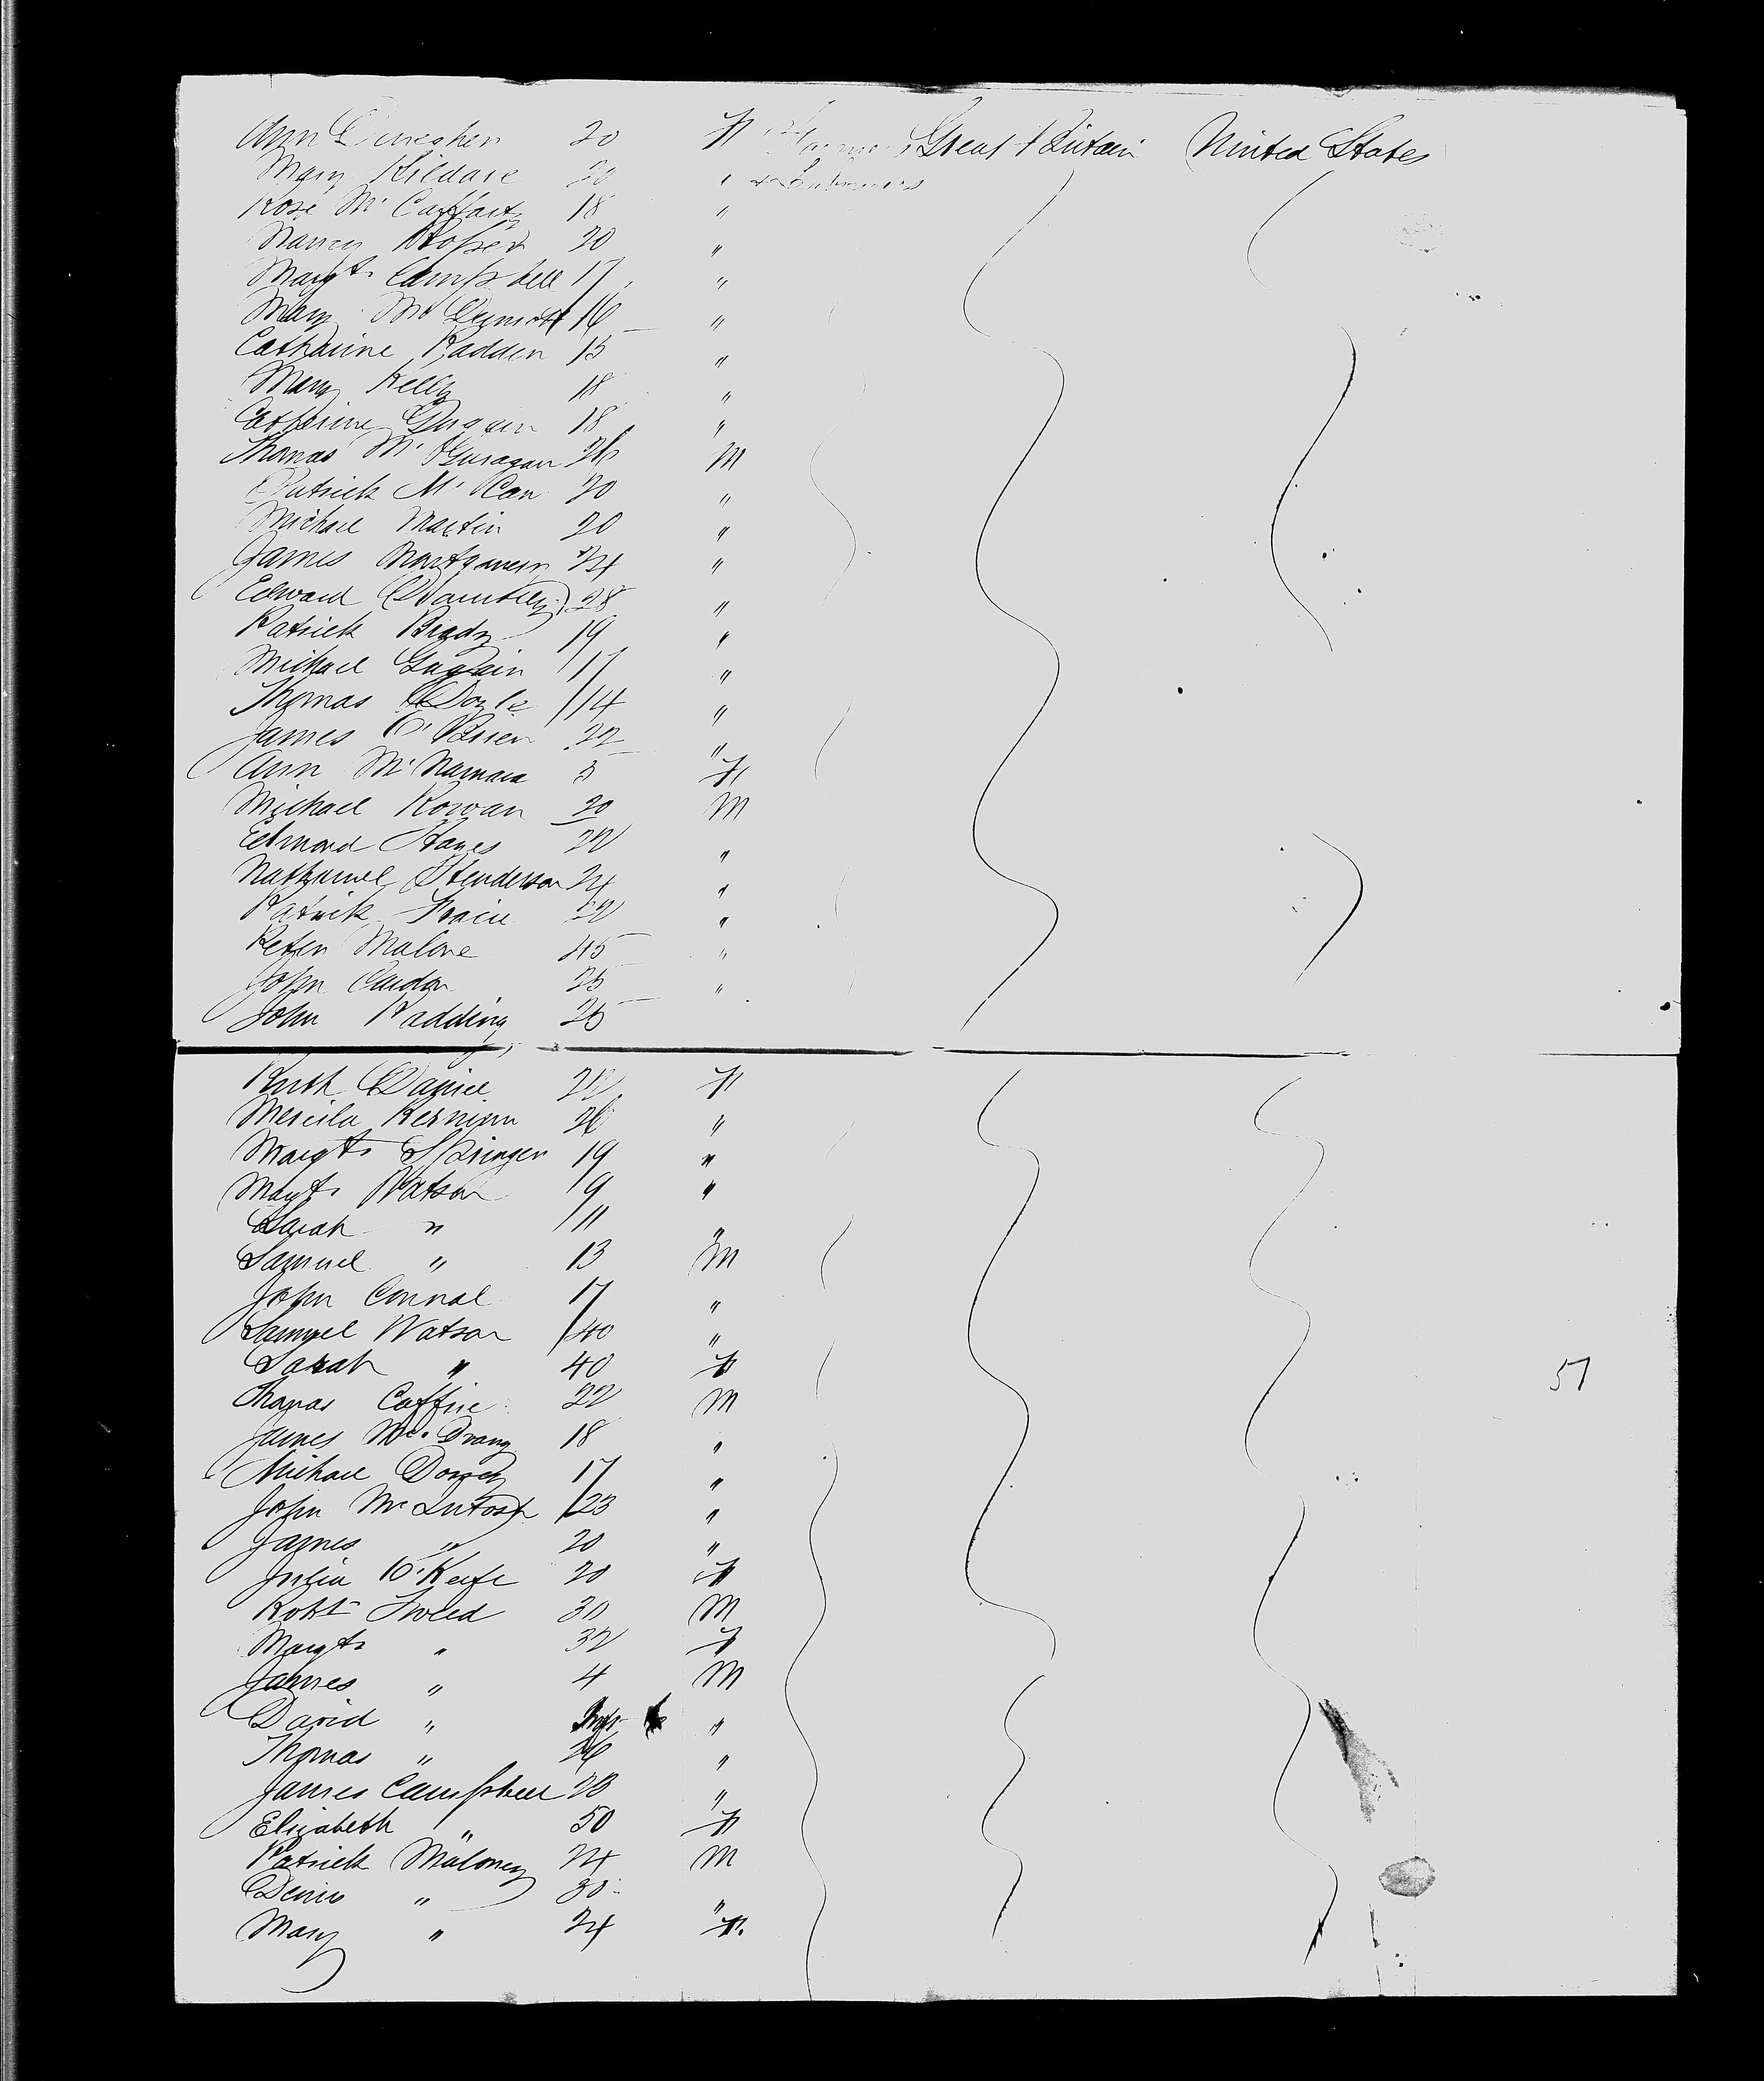 Ann 20 F Great Britain United States
Mary Kildare 20 " & Labourers
Rose Mc Caffarty 18 "
Nancy 20 "
Margt. Campbell 17 "
Mary Mc Dermott 16 "
Catharine Radden 15 "
Mary Kelly 18 "
Catherine 18 "
Thomas Mc Guragan 26 M
Patrick Mc Can 20 "
Michael Martin 20 "
James Montgomery 24 "
Edward 28 "
Patrick Brady 19 "
Michael 17 "
Thomas Doyle 14 "
James O'Brien 22 "
Ann Mc Namara 5 F
Michael Rowan 20 M
Edmond Hayes 22 "
Nathaniel Henderson 24 "
Patrick 22 "
Peter Malone 45 "
John 25 "
John Radding 25
Ruth Daniel 22 F
Kernion 26 "
Margt. Springer 19 "
Margt. Watson 9 "
Sarah " 11 "
Samuel " 13 M
John Connal 17 "
Samuel Watson 40 "
Sarah " 40 F
Thomas Caffrie 22 M
James 18 "
Michael Dorsey 17 "
John McIntosh 23 "
James " 20 "
Julia O'Keefe 20 F
Robt Tweed 30 M
Margt. " 32 F
James " 4 M
David " "
Thomas " 26 "
James Campbell 20 "
Elizabeth " 50 F
Patrick Maloney 24 M
Denis " 30 "
Mary " 24 F.
57